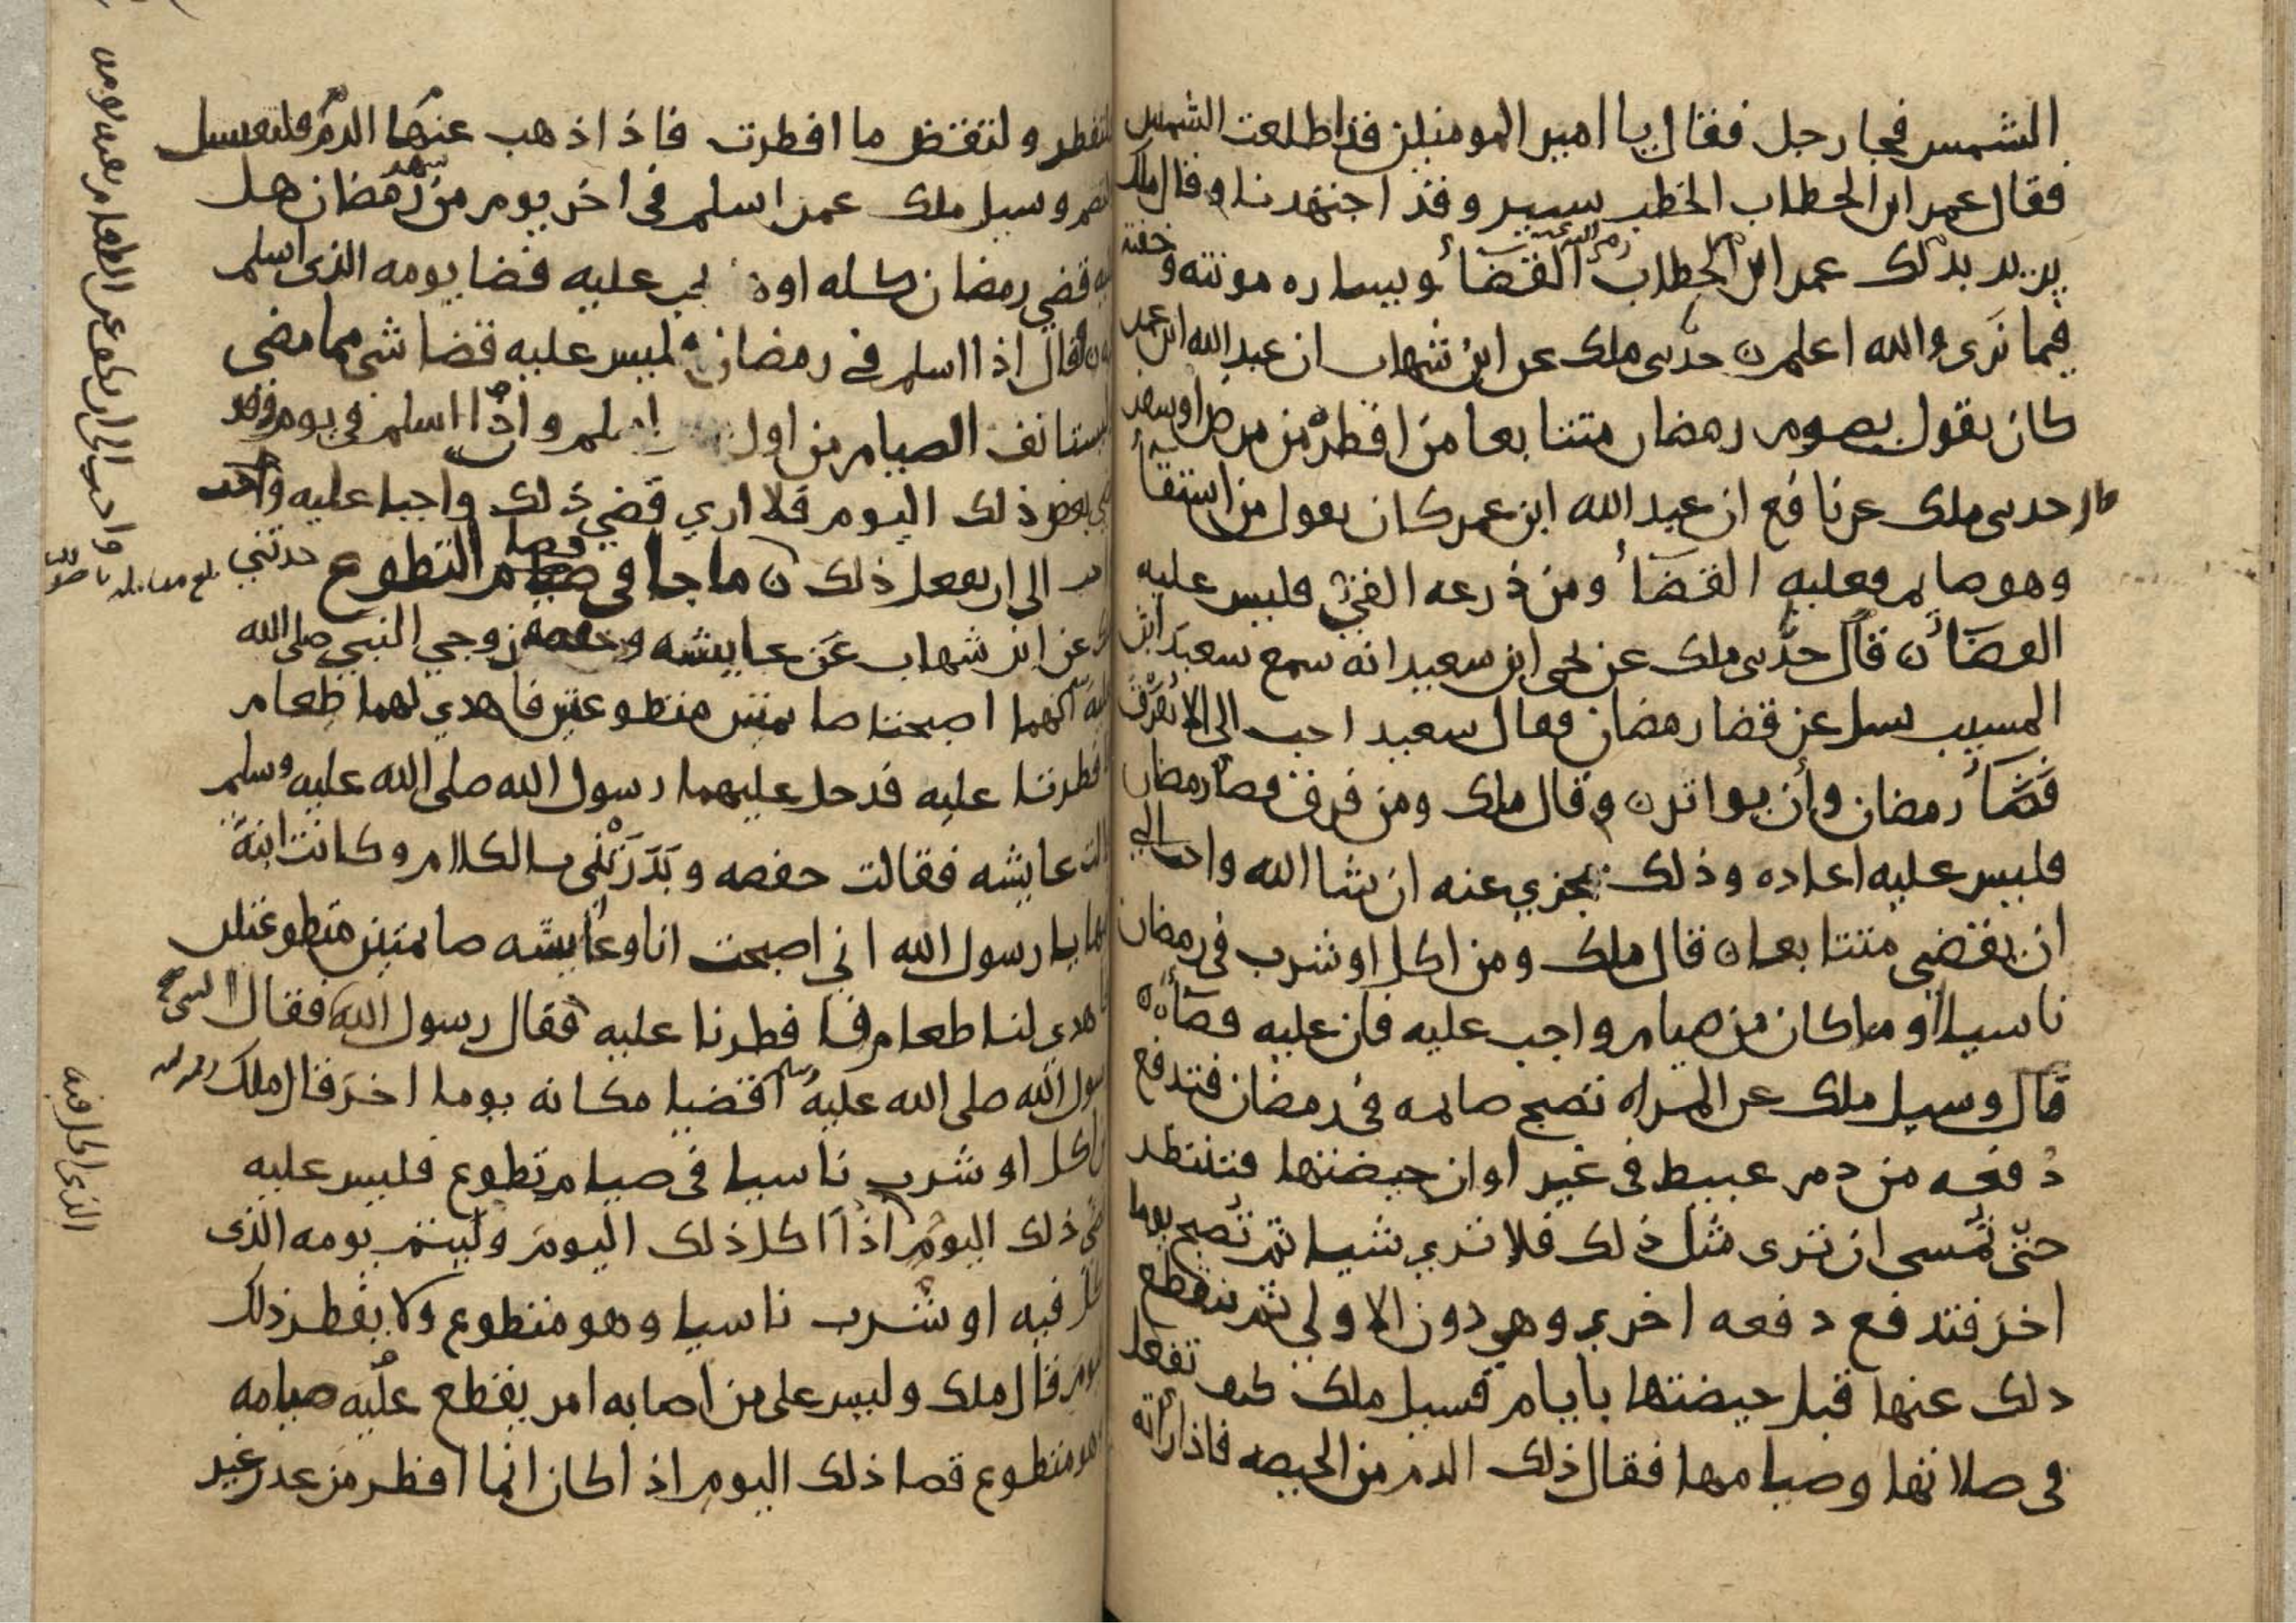 الشمس فجا رجل فقال يا امير المومنين قد اطلعت الشمس
فقال عمر ابن الخطاب الخطب يسير وقد اجتهدنا وقال ملك
يريد بذلك عمر ابن الخطاب القضأ ويساره مونته وخفته
فيما نرى والله اعلم ن حدثنى ملك عن ابن شهاب ان عبد الله ابن عمر
كان يقول يصوم رمضان متتابعا من افطره من مرض او سفر
قال حدثنى ملك عن نافع ان عبد الله ابن عمر كان يقول من استقأ
وهو صايم فعليه القضأ ومن ذرعه القى فليس عليه
القضأ ن قال حدثنى ملك عن يحيى ابن سعيد انه سمع سعيد ابن
المسيب يسل عن قضا رمضان فقال سعيد احب الى الا يفرق
قضأ رمضان وأن يواتر ن وقال ملك ومن فرق قضا رمضان
فليس عليه اعاده وذلك يجزي عنه ان شا الله واحب الي
ان يقضي متتابعا ن قال ملك ومن اكل او شرب في رمضان
ناسيا او ما كان من صيام واجب عليه فان عليه قضأه
قال وسيل ملك عن المراه تصبح صايمه في رمضان فتدفع
دفعه من دم عبيط في غير اوان حيضتها فتنتظر
حتى تمسى ان ترى مثل ذلك فلا تري شيا ثم تصبح يوما
اخر فتدفع دفعه اخري وهي دون الاولي ثم ينقطع
ذلك عنها قبل حيضتها بايام فسيل ملك كيف تفعل
في صلاتها وصيامها فقال ذلك الدم من الحيضه فاذا رأته
فلتفطر ولتقض ما افطرت فاذا ذهب عنها الدم فلتغتسل
ولتصم وسيل ملك عمن اسلم في اخر يوم من رمضان هل
عليه قضي رمضان كله او يجب عليه قضا يومه الذى اسلم
فقال اذا اسلم في رمضان ليس عليه قضا شى مما مضى
يستانف الصيام من اول اسلم واذا اسلم في يوم وقد
مضي بعض ذلك اليوم فلا اري قضي ذلك واجبا عليه واحب
الى ان يفعل ذلك ن ما جا في قضا صيام التطوع حدثني
ملك عن ابن شهاب عن عايشه وحفصه زوجي النبي صلى الله
عليه انهما اصبحتا صايمتين متطوعتين فاهدي لهما طعام
فافطرتا عليه فدخل عليهما رسول الله صلى الله عليه وسلم
قالت عايشه فقالت حفصه وبدرتني بالكلام وكانت ابنة
ابيها يا رسول الله اني اصبحت انا وعايشه صايمتين متطوعتين
فاهدى لنا طعام فافطرنا عليه فقال رسول الله فقال
رسول الله صلى الله عليه وسلم اقضيا مكانه يوما اخر قال ملك
من اكل او شرب ناسيا في صيام تطوع فليس عليه
قضى ذلك اليوم اذا اكل ذلك اليوم وليتم يومه الذى
اكل فيه او شرب ناسيا وهو متطوع ولا يفطر ذلك
اليوم قال ملك وليس على من اصابه امر يقطع عليه صيامه
وهو متطوع قضا ذلك اليوم اذا كان انما افطر من عذر غير
واحب الى ان يكفر عن الطعام
الذى اكل فيه